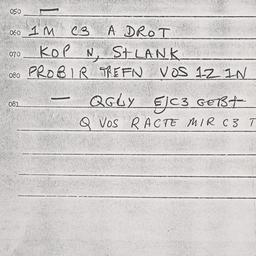 050 —
060 1M C3 A DROT
070 KOP N, S+LANK
080 PROBIR TREFN VOS 1Z 1N
081 — QGLY EJC3 GETST
Q VOS RACTE MIR C3 T